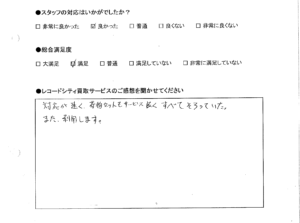 ●スタッフの対応はいかがでしたか？
□ 非常に良かった ☑ 良かった □ 普通 □ 良くない □ 非常に良くない
●総合満足度
□ 大満足 ☑ 満足 □ 普通 □ 満足していない □ 非常に満足していない
●レコードシティ買取サービスのご感想を聞かせてください
対応が速く、サービス すべてそろっていた。
また、利用します。